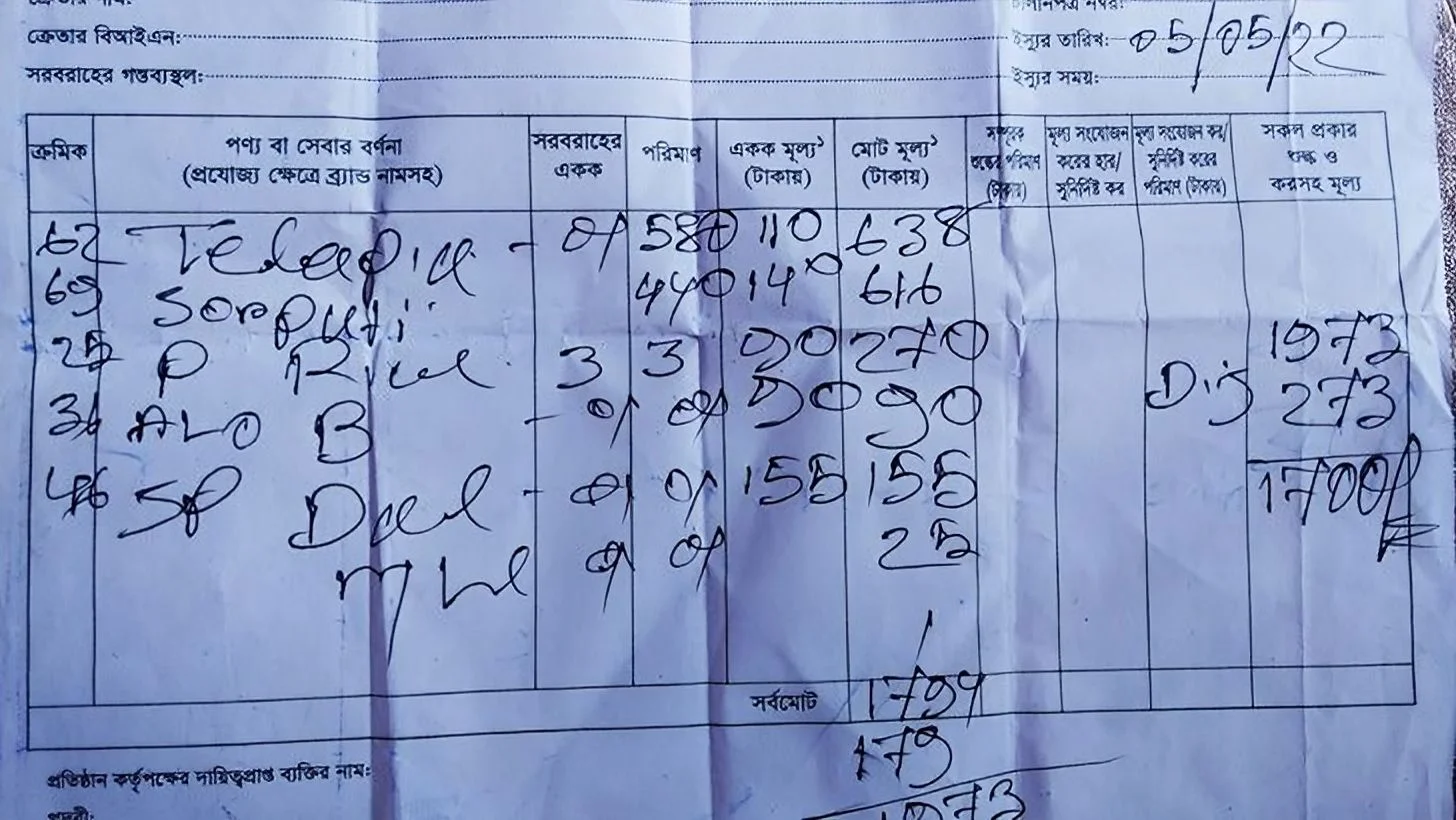 ক্রেতার বিআইএন:
ইস্যুর তারিখ: 05/05/22
সরবরাহের গন্তব্যস্থল:
ইস্যুর সময়:
ক্রমিক পণ্য বা সেবার বর্ণনা (প্রযোজ্য ক্ষেত্রে ব্র্যান্ড নামসহ) সরবরাহের একক পরিমাণ একক মূল্য১ (টাকায়) মোট মূল্য১ (টাকায়) সম্পূরক শুল্কের পরিমাণ (টাকায়) মূল্য সংযোজন করের হার/ সুনির্দিষ্ট কর মূল্য সংযোজন কর/ সুনির্দিষ্ট করের পরিমাণ (টাকায়) সকল প্রকার শুল্ক ও করসহ মূল্য
62 Telapia - 580 110 638
69 Sorputi 440 140 616
25 P Rice 3 3 90 270 1973
ALO B - 90 90 Dis 273
46 SP Dal - 155 155 1700/
25
সর্বমোট 1794
179
1973
প্রতিষ্ঠান কর্তৃপক্ষের দায়িত্বপ্রাপ্ত ব্যক্তির নাম:
পদবী: